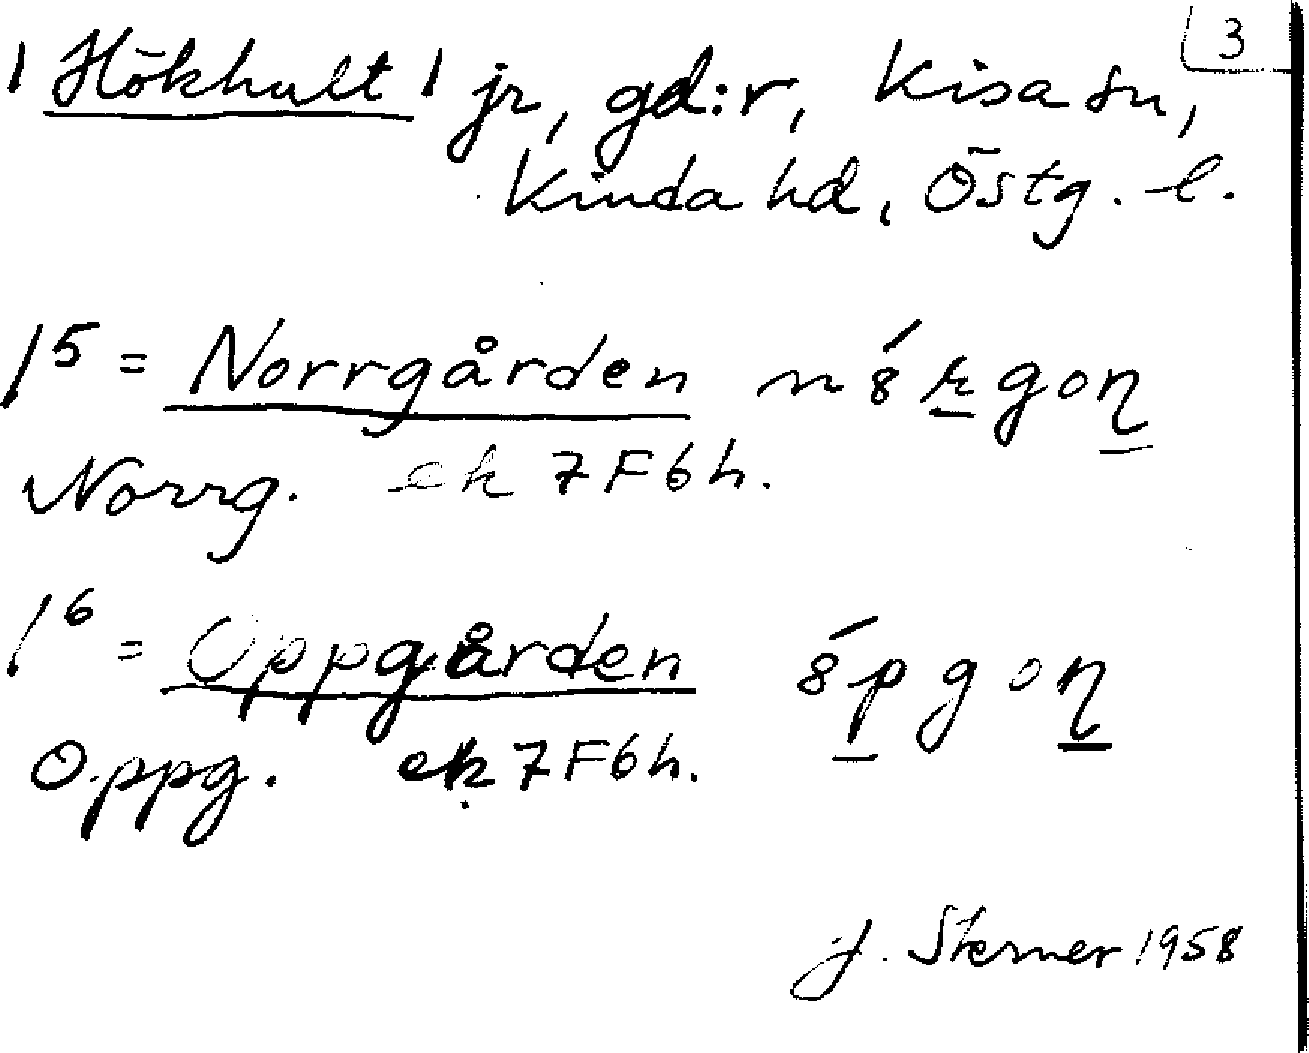 3
1 Hökhult 1 jr, gd:r, Kisa sn,
Kinda hd, Östg. l.
1⁵ = Norrgården
Norrg. ek 7F6h.
1⁶ = Oppgården
Oppg. ek 7F6h.
J. Sterner 1958